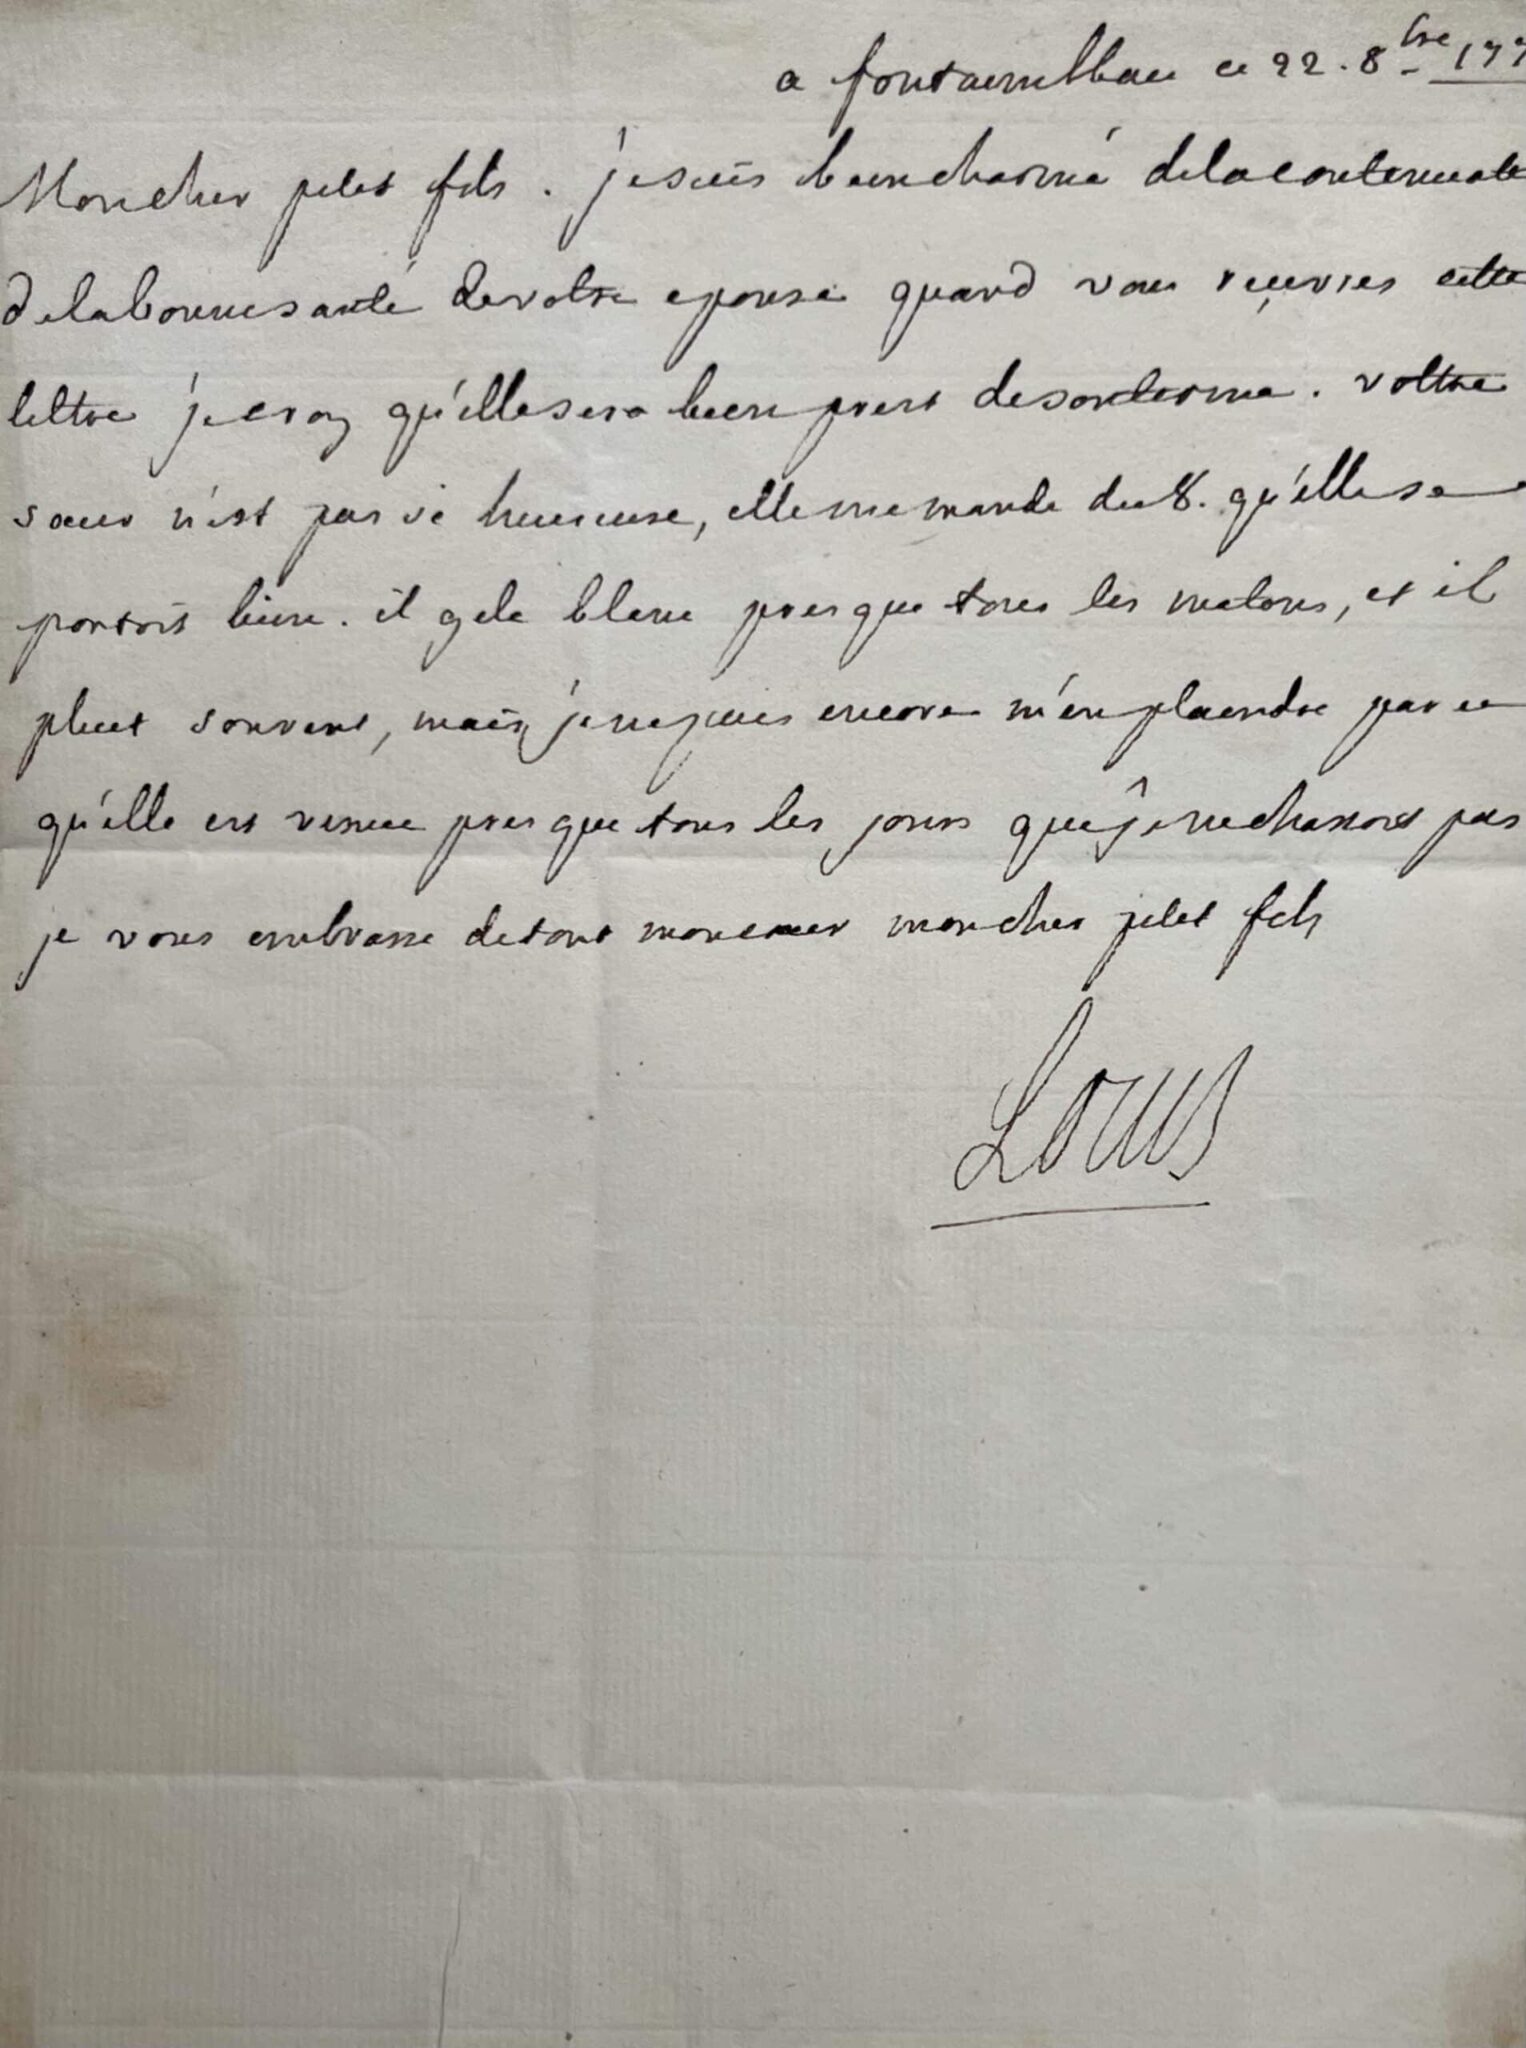 a fontainebleau ce 22. 8bre 177
Mon cher petit fils. je suis bien charmé de la continuati
de la bonne santé de voltre epouse quand vous recevrés cette
lettre je croy qu'elle sera bien prest de son terme. voltre
sœur n'est pas si heureuse, elle me mande du 8. qu'elle se
portoit bien. il gele blanc presque tous les matins, et il
pleut souvent, mais je ne puis encore m'en plaindre par ce
qu'elle est venue presque tous les jours que je ne chassois pas
je vous embrasse de tout mon cœur mon cher petit fils
Louis